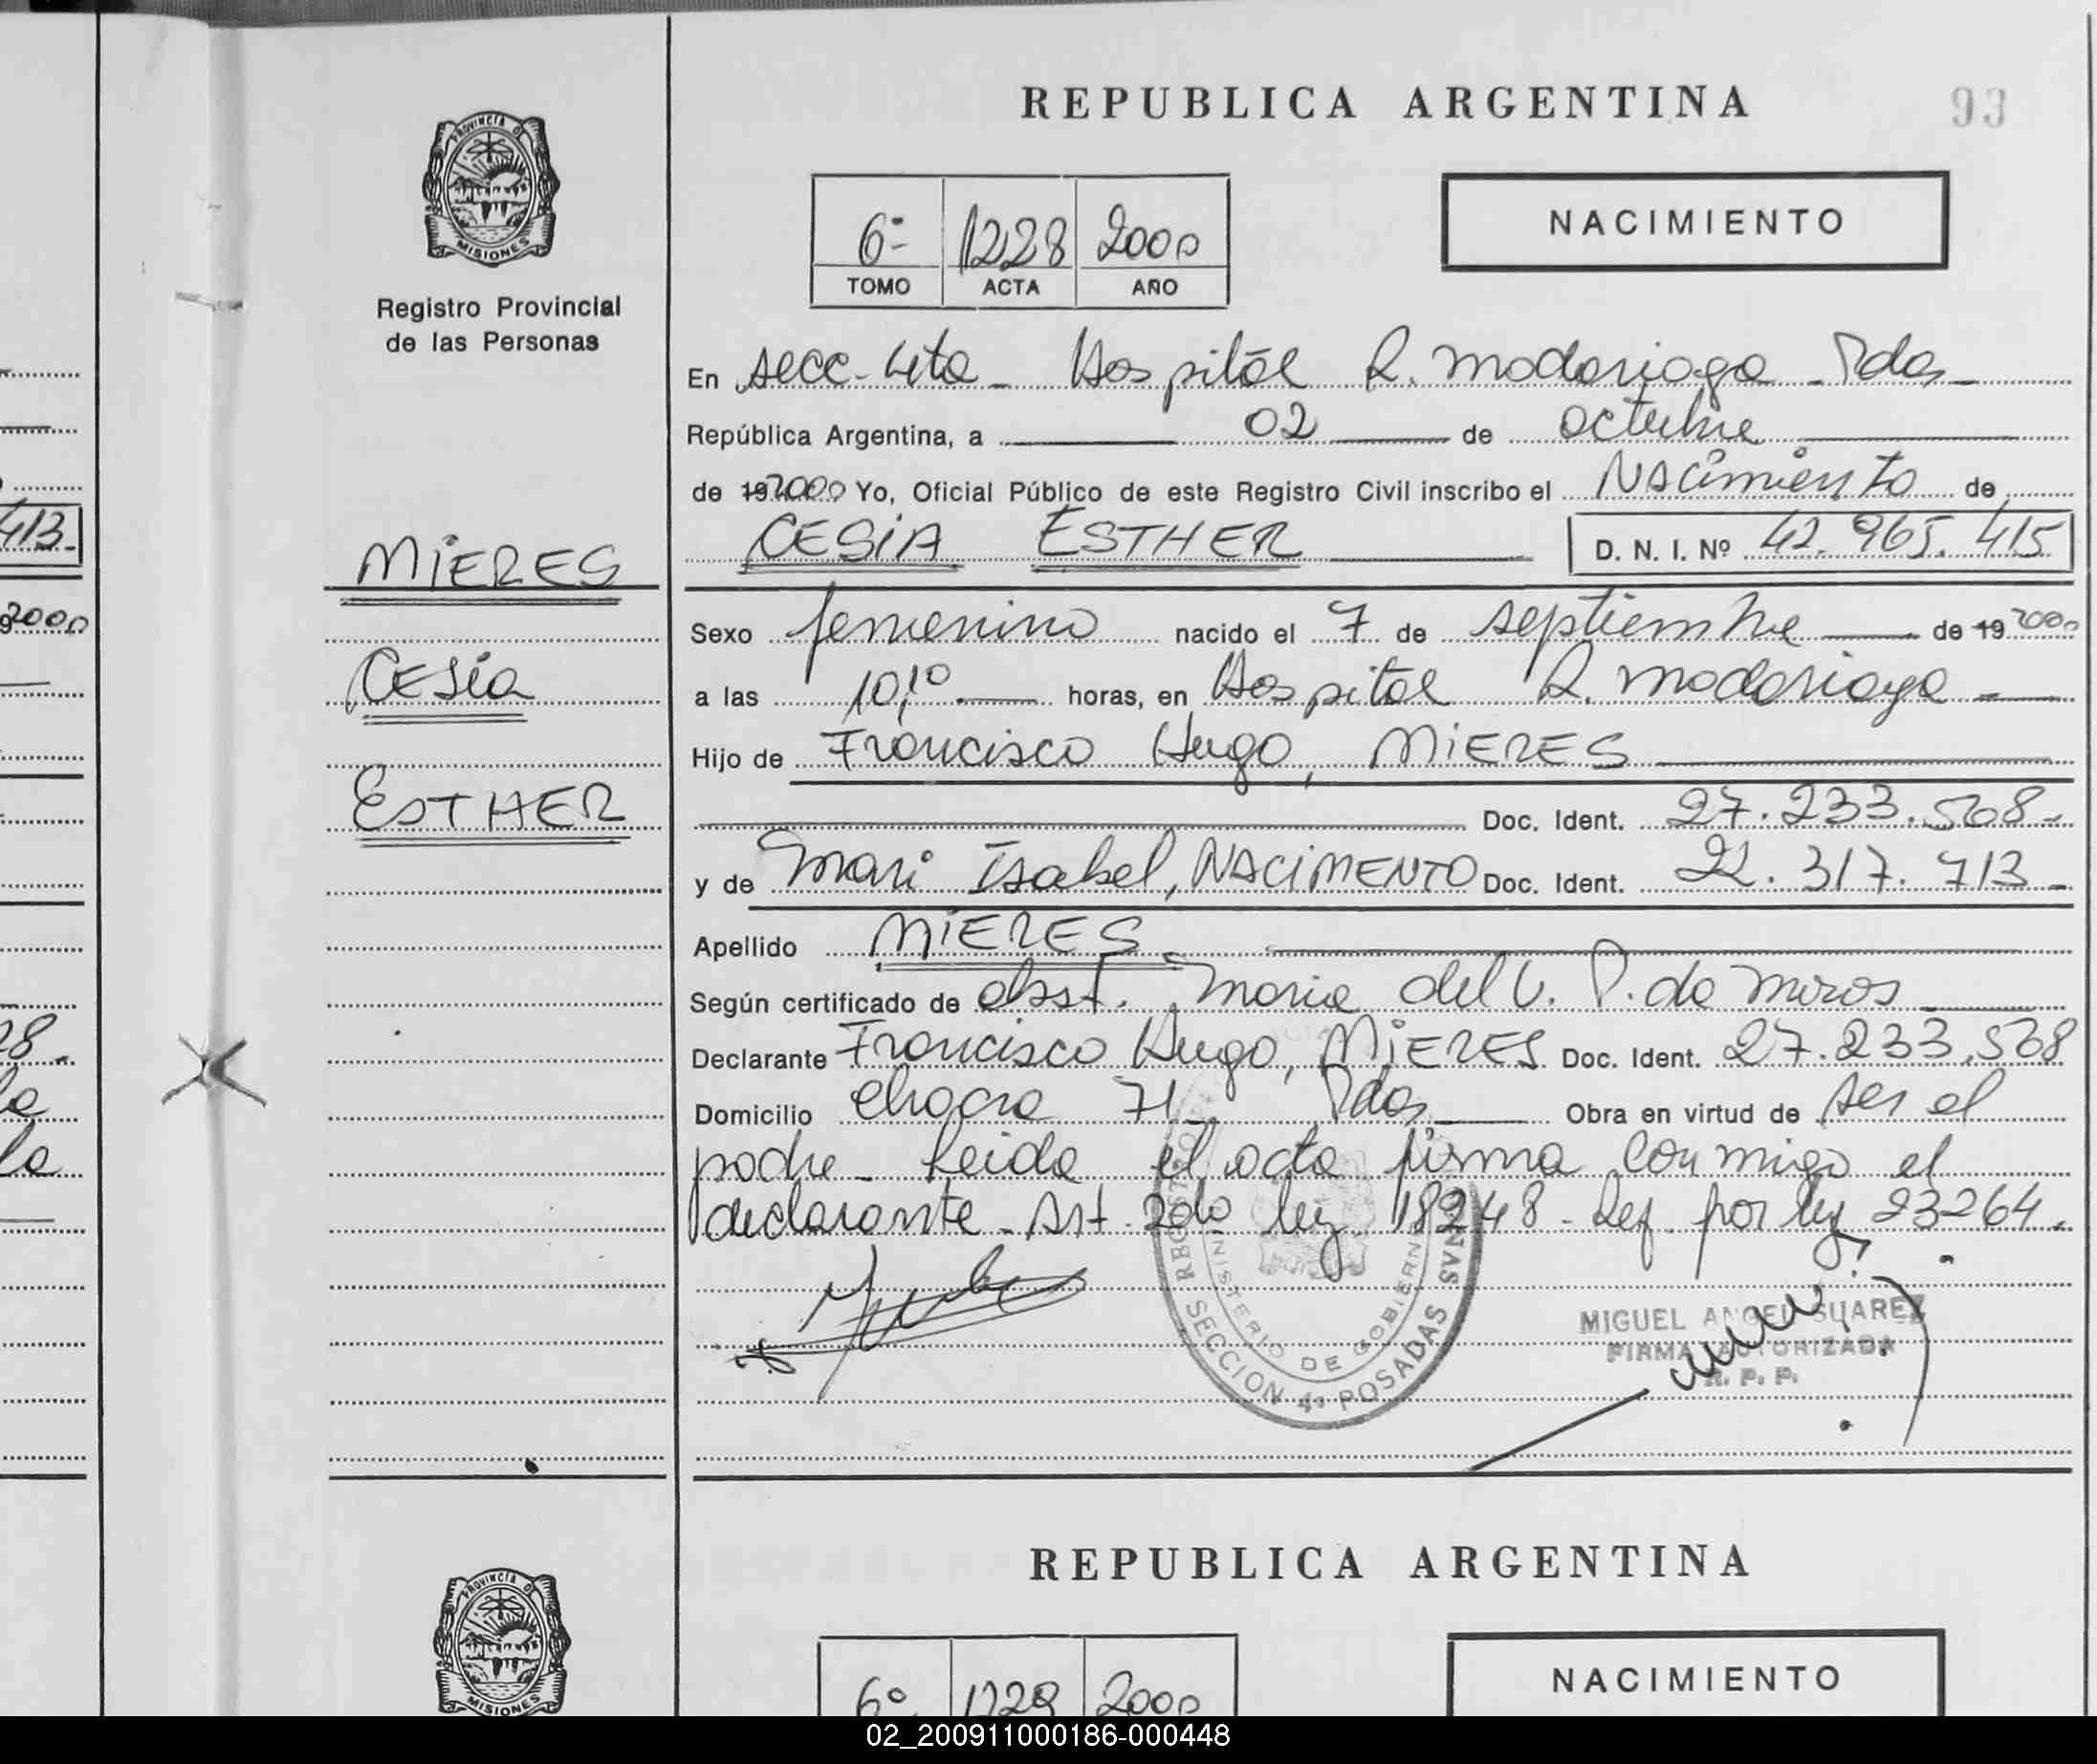 REPUBLICA ARGENTINA
93
PROVINCIA DE
MISIONES
Registro Provincial
de las Personas
6º 1228 2000
TOMO ACTA AÑO
NACIMIENTO
En secc. 4ta - Hospital R. Madariaga - Pdas -
República Argentina, a 02 de octubre
de 19 2000 Yo, Oficial Público de este Registro Civil inscribo el Nacimiento de
CESIA ESTHER D. N. I. Nº 42.965.415
MIERES
Cesia
ESTHER
Sexo femenino nacido el 7 de septiembre de 19 2000
a las 10,10 horas, en Hospital R. Madariaga
Hijo de Francisco Hugo, MIERES
Doc. Ident. 27.233.568.
y de Mari Isabel, NACIMENTO Doc. Ident. 22.317.713
Apellido MIERES
Según certificado de obst. Maria del V. P. de
Declarante Francisco Hugo, MIERES Doc. Ident. 27.233.568
Domicilio chacra 71 Pdas, Obra en virtud de ser el
padre - Leida el acta firma conmigo el
declarante - Art. 2do ley 18248 - Ref. por ley 23264.
MINISTERIO DE GOBIERNO
SECCION 4ª POSADAS
MIGUEL ANGEL SUAREZ
FIRMA AUTORIZADA
R. P. P.
413
2000
REPUBLICA ARGENTINA
PROVINCIA DE
MISIONES
6º 1229 2000
NACIMIENTO
02_200911000186-000448